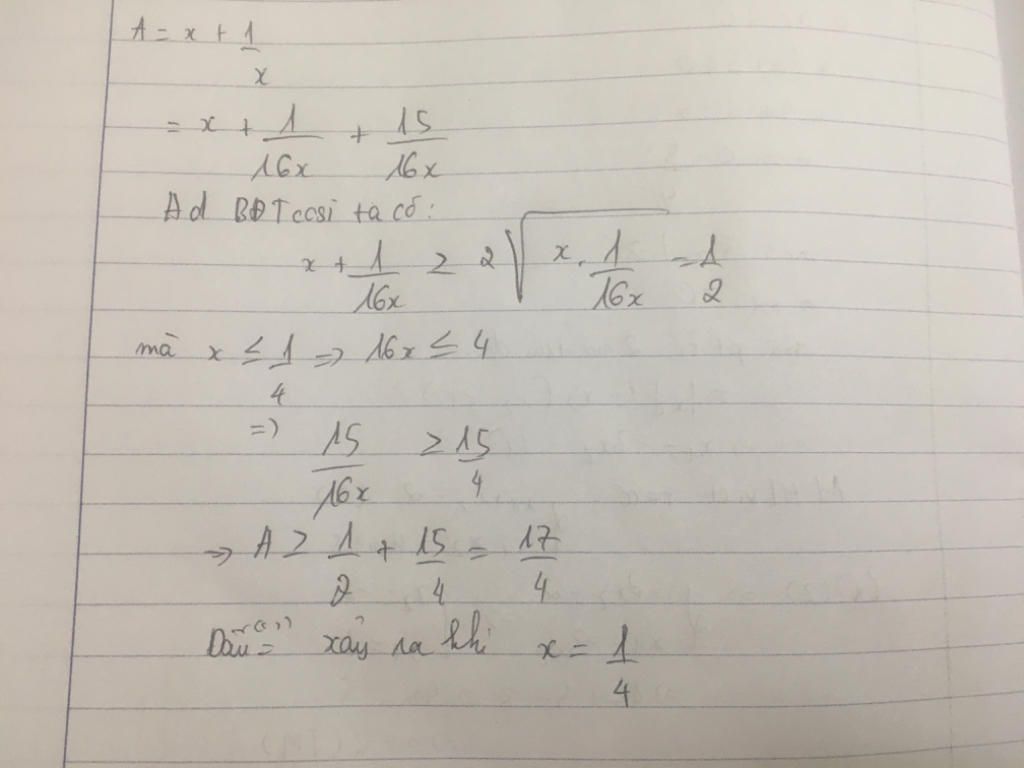 A = x + 1/x
= x + 1/16x + 15/16x
Ad BĐT cosi ta có:
x + 1/16x ≥ 2√(x . 1/16x) = 1/2
mà x ≤ 1/4 => 16x ≤ 4
=> 15/16x ≥ 15/4
=> A ≥ 1/2 + 15/4 = 17/4
Dấu "=" xảy ra khi x = 1/4